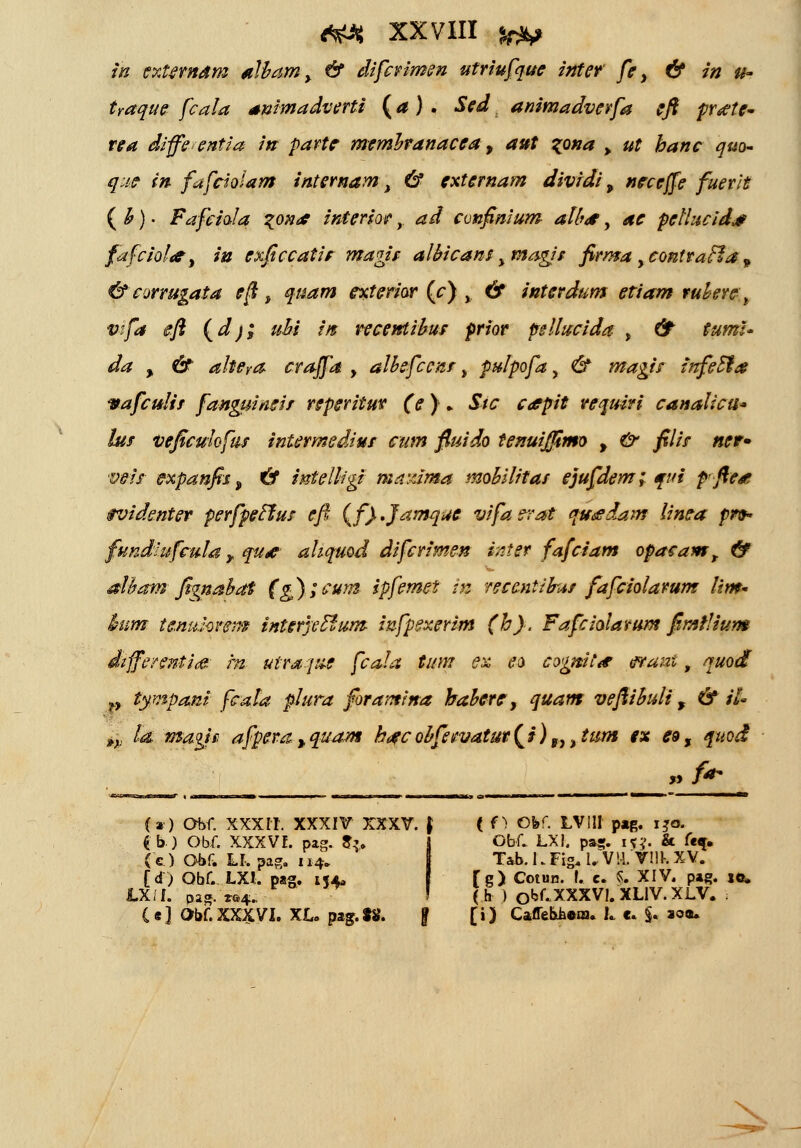 XXVIII
in externam albam, & discrimen utriusque inter se, & in u-
traque scala animadverti (a). Sed animadversa est præte-
rea differentia in parte membranacea, aut zona, ut hanc quo-
que in fasciolam internam, & externam dividi, necesse fuerit
(b). Fasciola zonæ interior, ad confinium albæ, ac pellucidæ
fasciolæ, in exsiccatis magis albicans, magis firma, contracta,
& corrugata est, quam exterior (c), & interdum etiam rubere,
visa est (d); ubi in recentibus prior pellucida, & tumi-
da, & altera crassa, albescens, pulposa, & magis infecta
vasculis sanguineis reperitur (e). Sic cæpit requiri canalicu-
lus vesiculosus intermedius cum fluido tenuissimo, & filis ner-
veis expansis, & intelligi maxima mobilitas ejusdem; qui postea
evidenter perspectus est (f). Jamque visa erat quædam linea pro-
fundiuscula, quæ aliquod discrimen inter fasciam opacam, &
albam signabat (g); cum ipsemet in recentibus fasciolarum lim-
bum tenuiorem interjectum inspexerim (h). Fasciolarum similium
differentiæ in utraque scala tum ex eo cognitæ erant, quod
„ tympani scala plura foramina habere, quam vestibuli, & il-
„ la magis aspera, quam hæc observatur (i) „, tum ex eo, quod
„ fa-
(a) Obs. XXXII. XXXIV XXXV.
(b) Obs. XXXVI. pag. 83.
(c) Obs. LI. pag. 114.
[d) Obs. LXI. pag. 154.
LXII. pag. 164.
(e] Obs. XXXVI. XL. pag. 88.
(f) Obs. LVIII pag. 150.
Obs. LXI. pag. 153. & seq.
Tab. I. Fig. I. VII. VIII. XV.
[g) Cotun. l. c. §. XIV. pag. 10.
(h) Obs. XXXVI. XLIV. XLV.
[i) Cassebhom. l. c. §. 200.